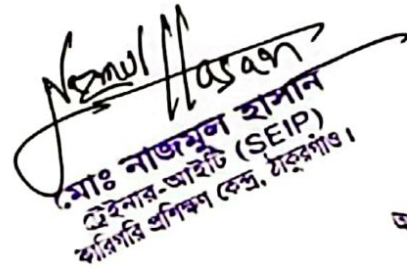 Nazmul Hasan
মোঃ নাজমুল হাসান
ট্রেইনার-আইটি (SEIP)
কারিগরি প্রশিক্ষণ কেন্দ্র, ঠাকুরগাঁও।